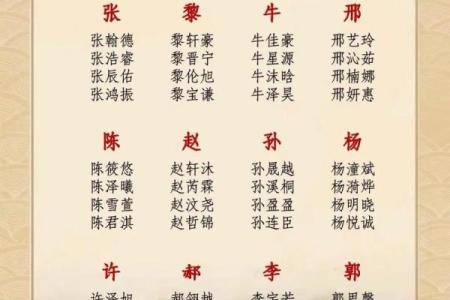 张 黎 牛 邢
张翰德 黎轩豪 牛佳豪 邢艺玲
张浩睿 黎晋宁 牛星源 邢沁茹
张辰佑 黎伦旭 牛沫晗 邢楠娜
张鸿振 黎宝谦 牛泽昊 邢妍惠
陈 赵 孙 杨
陈筱悠 赵轩沐 孙晟越 杨潼斌
陈泽曦 赵芮霖 孙溪桐 杨漪烨
陈雪萱 赵汶尧 孙盈盈 杨明晓
陈君淇 赵哲锦 孙连臣 杨悦诚
许 郝 李 郭